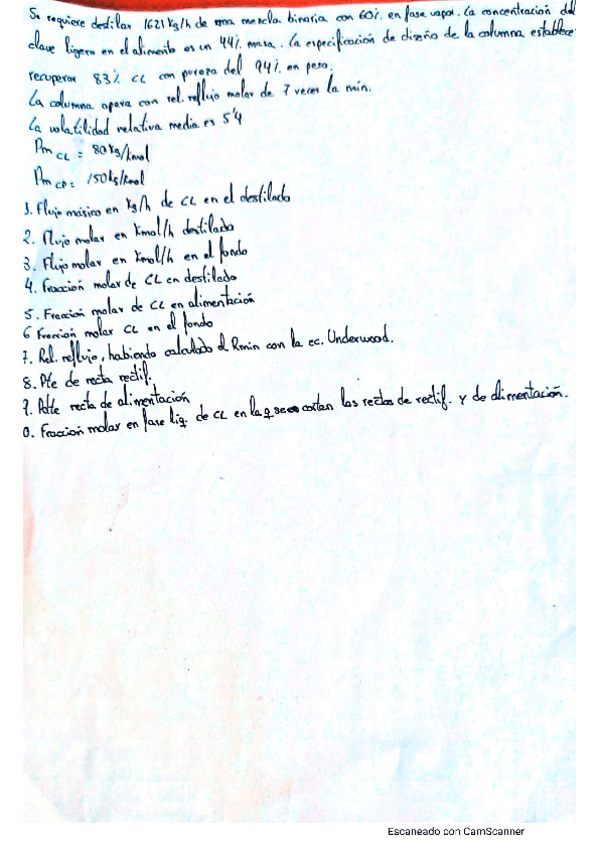 Se requiere destilar 1621 kg/h de una mezcla binaria con 60% en fase vapor. La concentración del
clave ligero en el alimento es un 44% masa. La especificación de diseño de la columna establece
recuperar 83% CL con pureza del 94% en peso.
La columna opera con rel. reflujo molar de 7 veces la mín.
La volatilidad relativa media es 5'4
Pm CL = 80 kg/kmol
Pm CP = 150 kg/kmol
1. Flujo másico en kg/h de CL en el destilado
2. Flujo molar en kmol/h destilado
3. Flujo molar en kmol/h en el fondo
4. Fracción molar de CL en destilado
5. Fracción molar de CL en alimentación
6 Fracción molar CL en el fondo
7. Rel. reflujo, habiendo calculado el Rmin con la ec. Underwood.
8. Pte de recta rectif.
9. Pdte recta de alimentación
0. Fracción molar en fase liq. de CL en la q se cortan las rectas de rectif. y de alimentación.
Escaneado con CamScanner